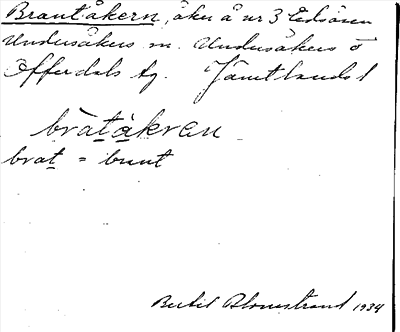 Brantåkern, åker å nr 3 Edsåsen
Undersåkers sn. Undersåkers o
Offerdals tg. Jämtlands l
bràtàkren
brat = brant
Bertil Blomstrand 1934